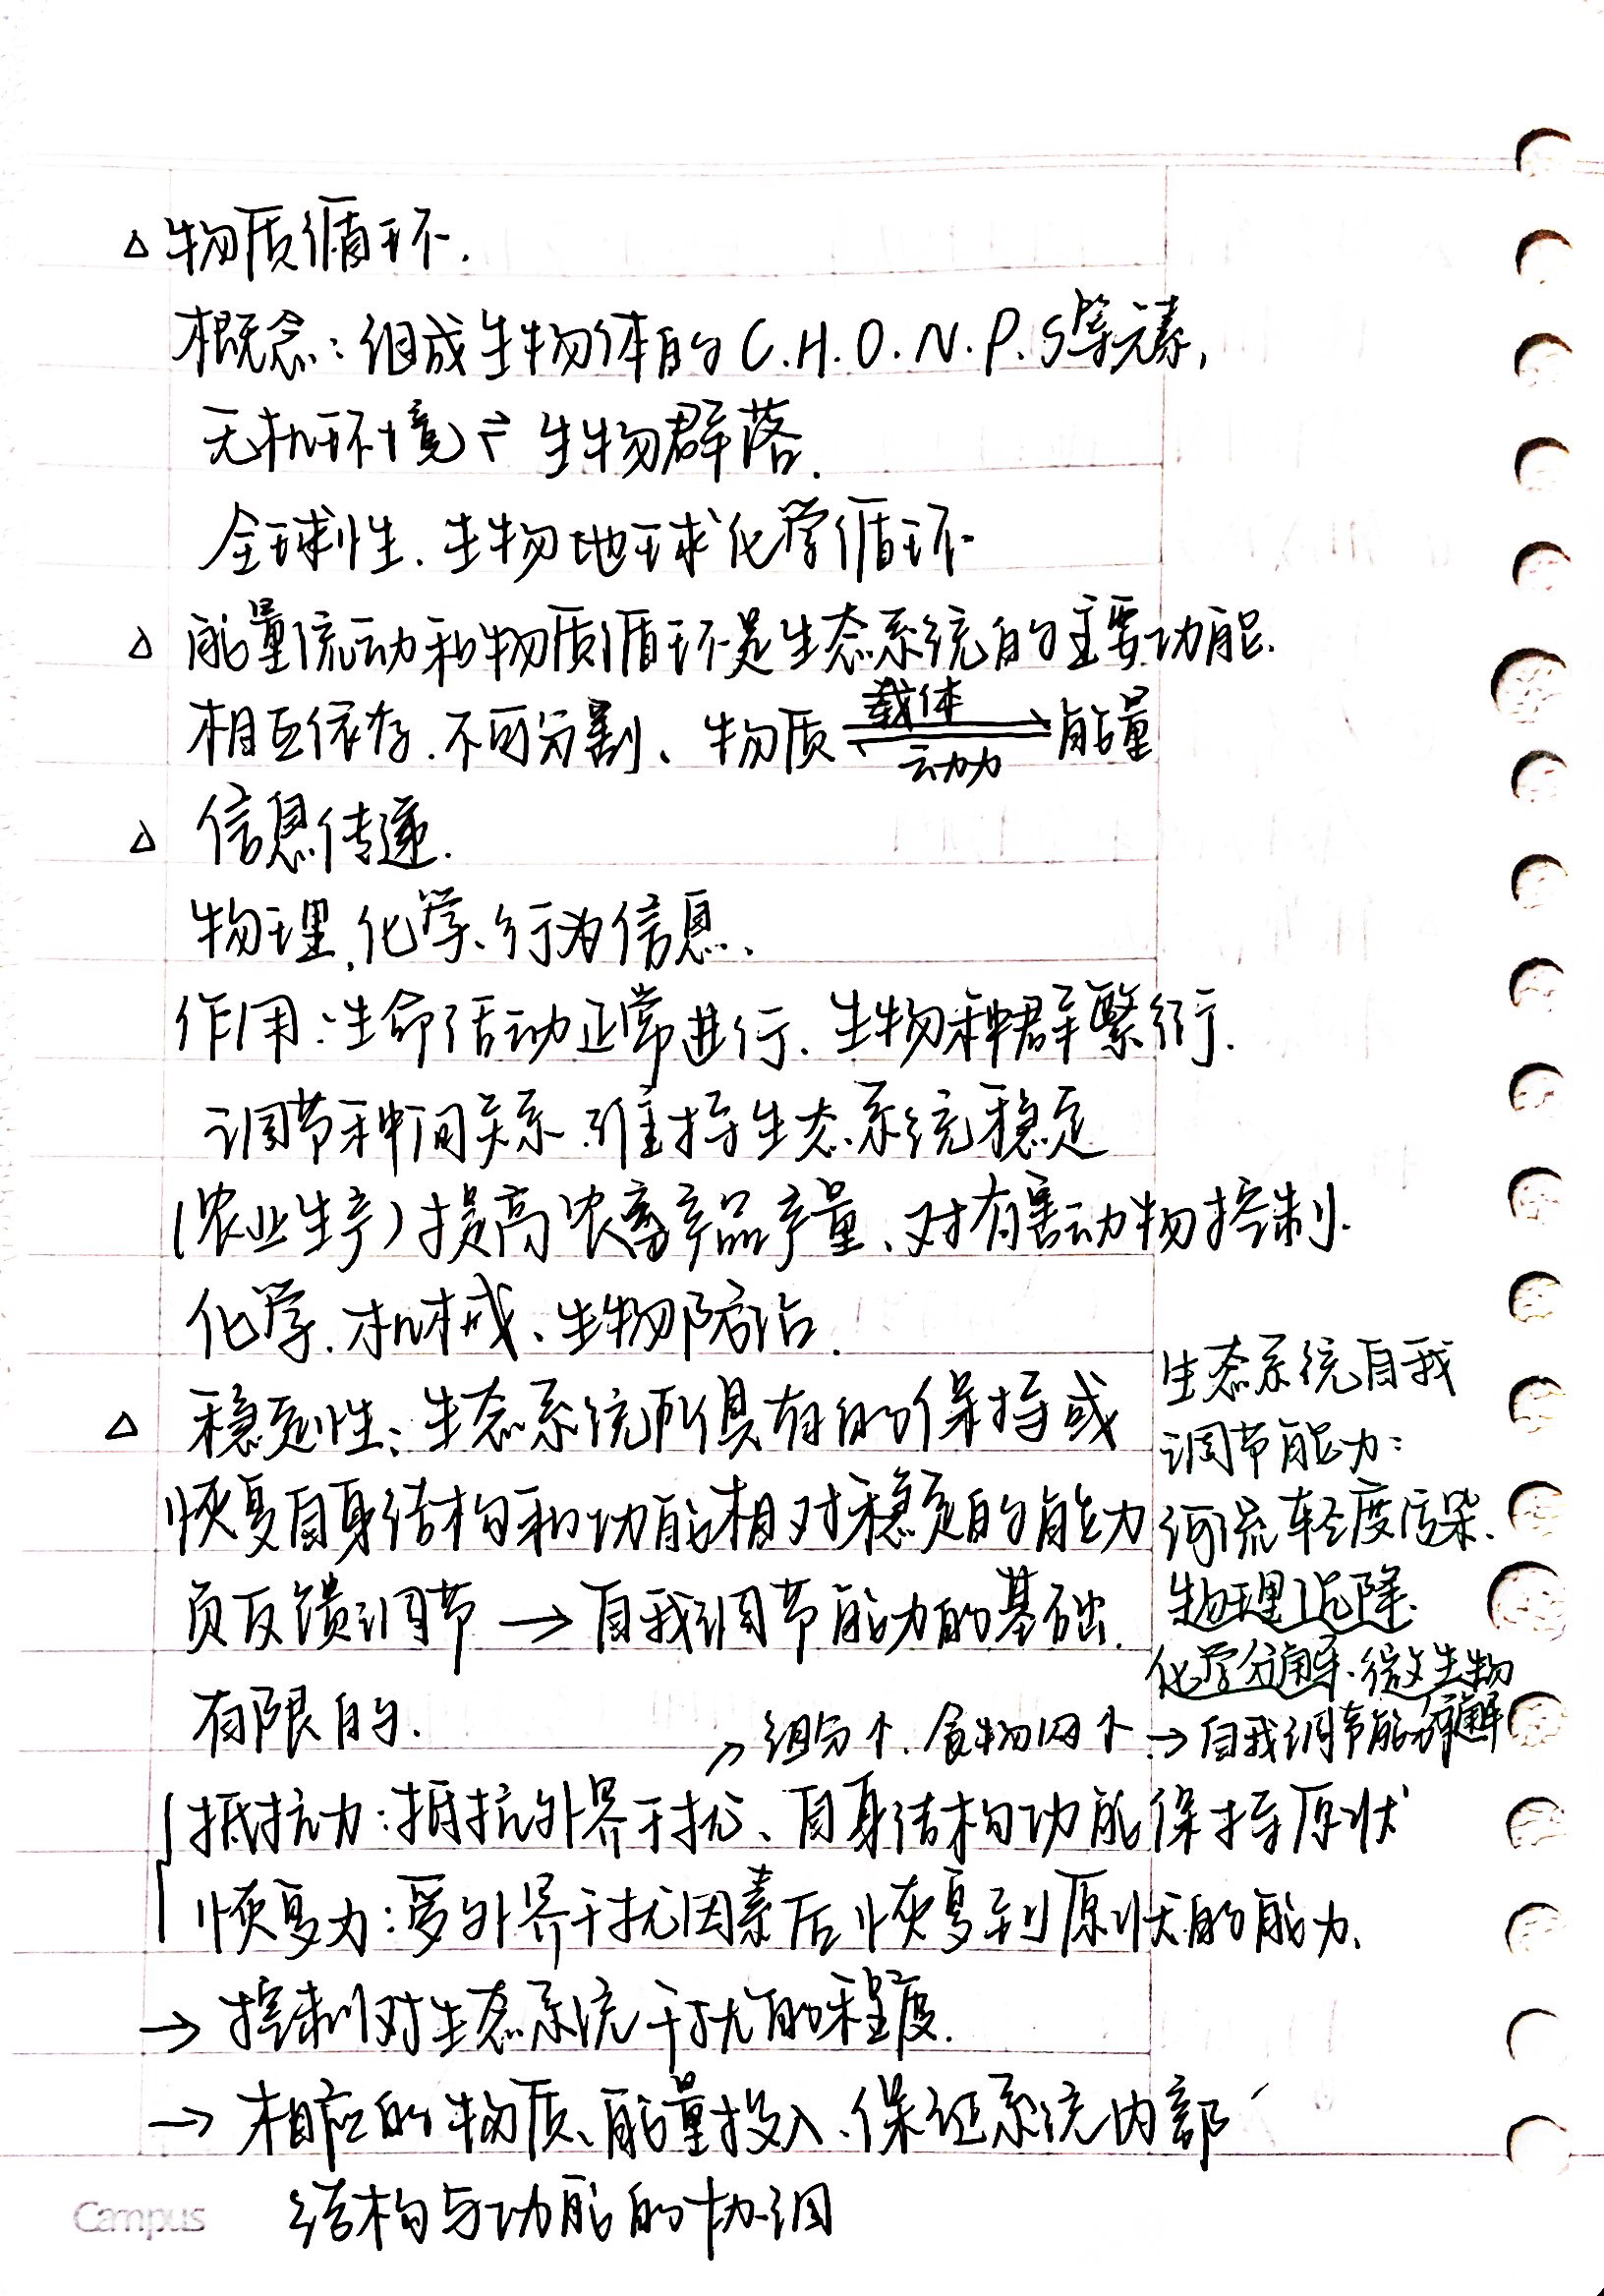 △ 物质循环.
概念:组成生物体的C.H.O.N.P.S等元素,
无机环境⇌生物群落.
全球性.生物地球化学循环
△ 能量流动和物质循环是生态系统的主要功能.
相互依存.不可分割、物质 载体 动力 能量
△ 信息传递.
物理、化学、行为信息、
作用:生命活动正常进行.生物种群繁衍.
调节种间关系.维持生态系统稳定
(农业生产)提高农畜产品产量、对有害动物控制.
化学.机械、生物防治.
△ 稳定性:生态系统所具有的保持或
恢复自身结构和功能相对稳定的能力
负反馈调节→自我调节能力的基础.
有限的.
生态系统自我
调节能力:
河流轻度污染.
物理沉降.
化学分解、微生物
分解
↗组分个.食物网个→自我调节能力
抵抗力:抵抗外界干扰、自身结构功能保持原状
恢复力:受外界干扰因素后恢复到原状的能力.
→控制对生态系统干扰的程度.
→相应的物质、能量投入、保证系统内部
结构与功能的协调
Campus